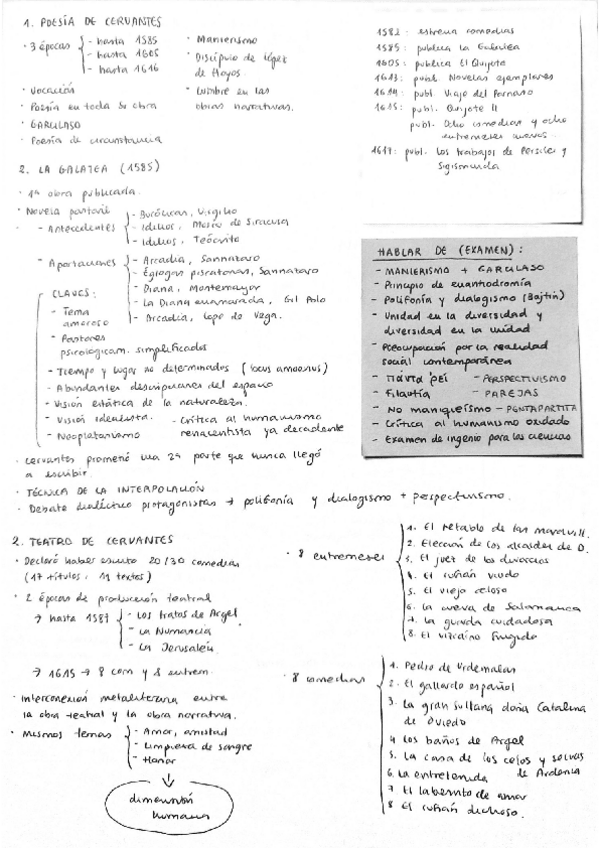 1. POESÍA DE CERVANTES
· 3 épocas
- hasta 1585
- hasta 1605
- hasta 1616
· Vocación
· Poesía en toda su obra
· GARCILASO
· Poesía de circunstancia
· Manierismo
· Discípulo de López
de Hoyos.
· Cumbre en las
obras narrativas.
1582: estrena comedias
1585: publica La Galatea
1605: publica El Quijote
1613: publ. Novelas ejemplares
1614: publ. Viaje del Parnaso
1615: publ. Quijote II
publ. Ocho comedias y ocho
entremeses nuevos.
1617: publ. Los trabajos de Persiles y
Sigismunda
2. LA GALATEA (1585)
· 1ª obra publicada.
· Novela pastoril
- Antecedentes
- Bucólicas, Virgilio
- Idilios, Mosco de Siracusa
- Idilios, Teócrito
- Aportaciones
- Arcadia, Sannazaro
- Églogas piscatorias, Sannazaro
- Diana, Montemayor
- La Diana enamorada, Gil Polo
- Arcadia, Lope de Vega.
CLAVES:
- Tema
amoroso
- Pastores
psicológicam. simplificados
- Tiempo y lugar no determinados (locus amoenus)
- Abundantes descripciones del espacio
- Visión estática de la naturaleza.
- Visión idealista.
- Neoplatonismo
- Crítica al humanismo
renacentista ya decadente
· Cervantes prometió una 2ª parte que nunca llegó
a escribir.
· TÉCNICA DE LA INTERPOLACIÓN
· Debate dialéctico protagonistas → polifonía y dialogismo + perspectivismo.
HABLAR DE (EXAMEN):
- MANIERISMO + GARCILASO
- Principio de enantiodromía
- Polifonía y dialogismo (Bajtín)
- Unidad en la diversidad y
diversidad en la unidad
- Preocupación por la realidad
social contemporánea
- Πάντα ῥεῖ - PERSPECTIVISMO
- Filautía - PAREJAS
- No maniqueísmo - PENTAPARTITA
- Crítica al humanismo oxidado
- Examen de ingenio para las ciencias
2. TEATRO DE CERVANTES
· Declaró haber escrito 20/30 comedias
(17 títulos, 11 textos)
· 2 épocas de producción teatral
→ hasta 1587
- Los tratos de Argel
- La Numancia
- La Jerusalén.
→ 1615 → 8 com y 8 entrem.
· Interconexión metaliteraria entre
la obra teatral y la obra narrativa.
· Mismos temas
- Amor, amistad
- Limpieza de sangre
- Honor
dimensión
humana
· 8 entremeses
1. El retablo de las maravill.
2. Elección de los alcaldes de D.
3. El juez de los divorcios
4. El rufián viudo
5. El viejo celoso
6. La cueva de Salamanca
7. La guarda cuidadosa
8. El vizcaíno fingido
· 8 comedias
1. Pedro de Urdemalas
2. El gallardo español
3. La gran sultana doña Catalina
de Oviedo
4. Los baños de Argel
5. La casa de los celos y selvas
de Ardenia
6. La entretenida
7. El laberinto de amor
8. El rufián dichoso.